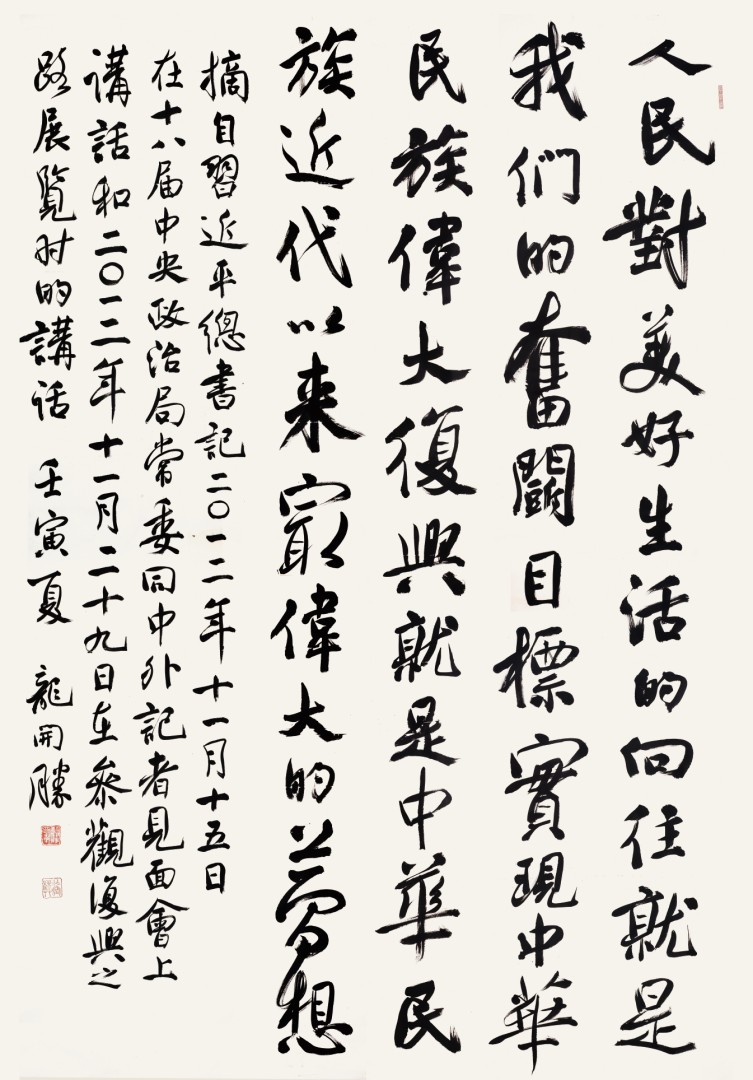 人民對美好生活的向往就是
我們的奮鬪目標實現中華
民族偉大復興就是中華民
族近代以来最偉大的夢想
摘自習近平總書記二〇一二年十一月十五日
在十八届中央政治局常委同中外記者見面會上
講話和二〇一二年十一月二十九日在參觀復興之
路展覽时的講话 壬寅夏 龍開勝